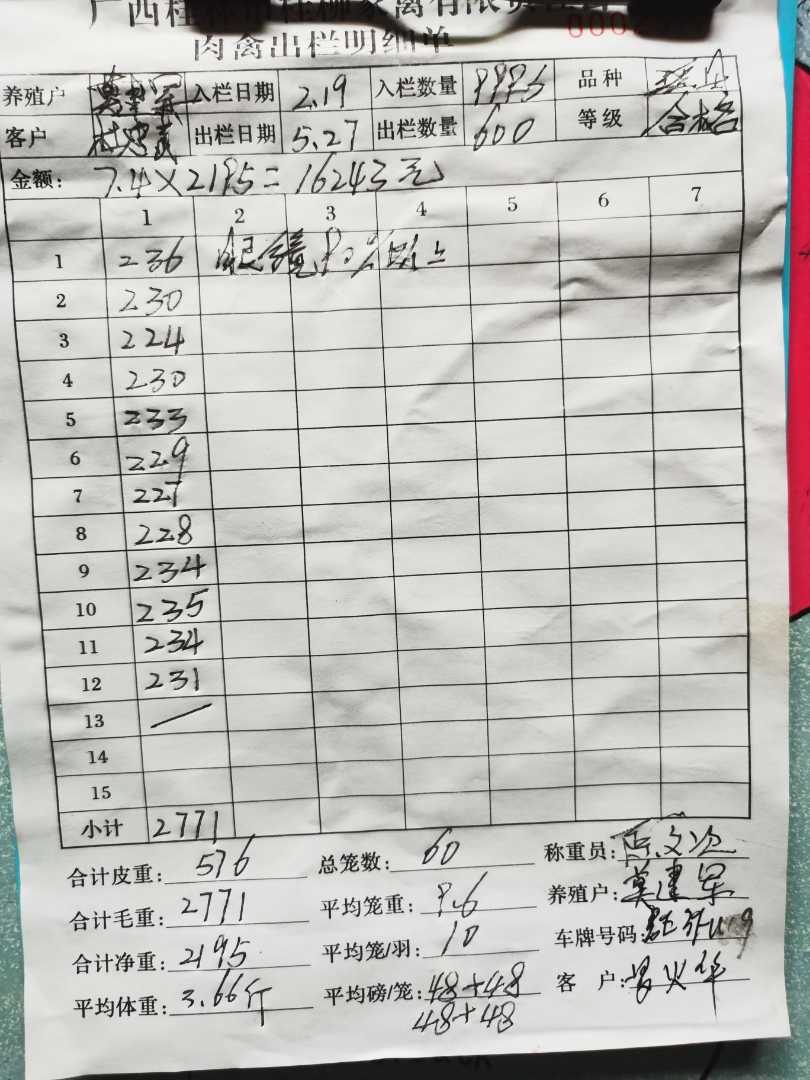 肉禽出栏明细单
养殖户 莫建军 入栏日期 2.19 入栏数量 品种
客户 出栏日期 5.27 出栏数量 600 等级 合格
金额: 7.4×2195=16243元
1 2 3 4 5 6 7
1 236 眼镜90%以上
2 230
3 224
4 230
5 233
6 229
7 227
8 228
9 234
10 235
11 234
12 231
13
14
15
小计 2771
合计皮重: 576 总笼数: 60 称重员:
合计毛重: 2771 平均笼重: 9.6 养殖户: 莫建军
合计净重: 2195 平均笼/羽: 10 车牌号码:
平均体重: 3.66斤 平均磅/笼: 48+48 客 户:
48+48